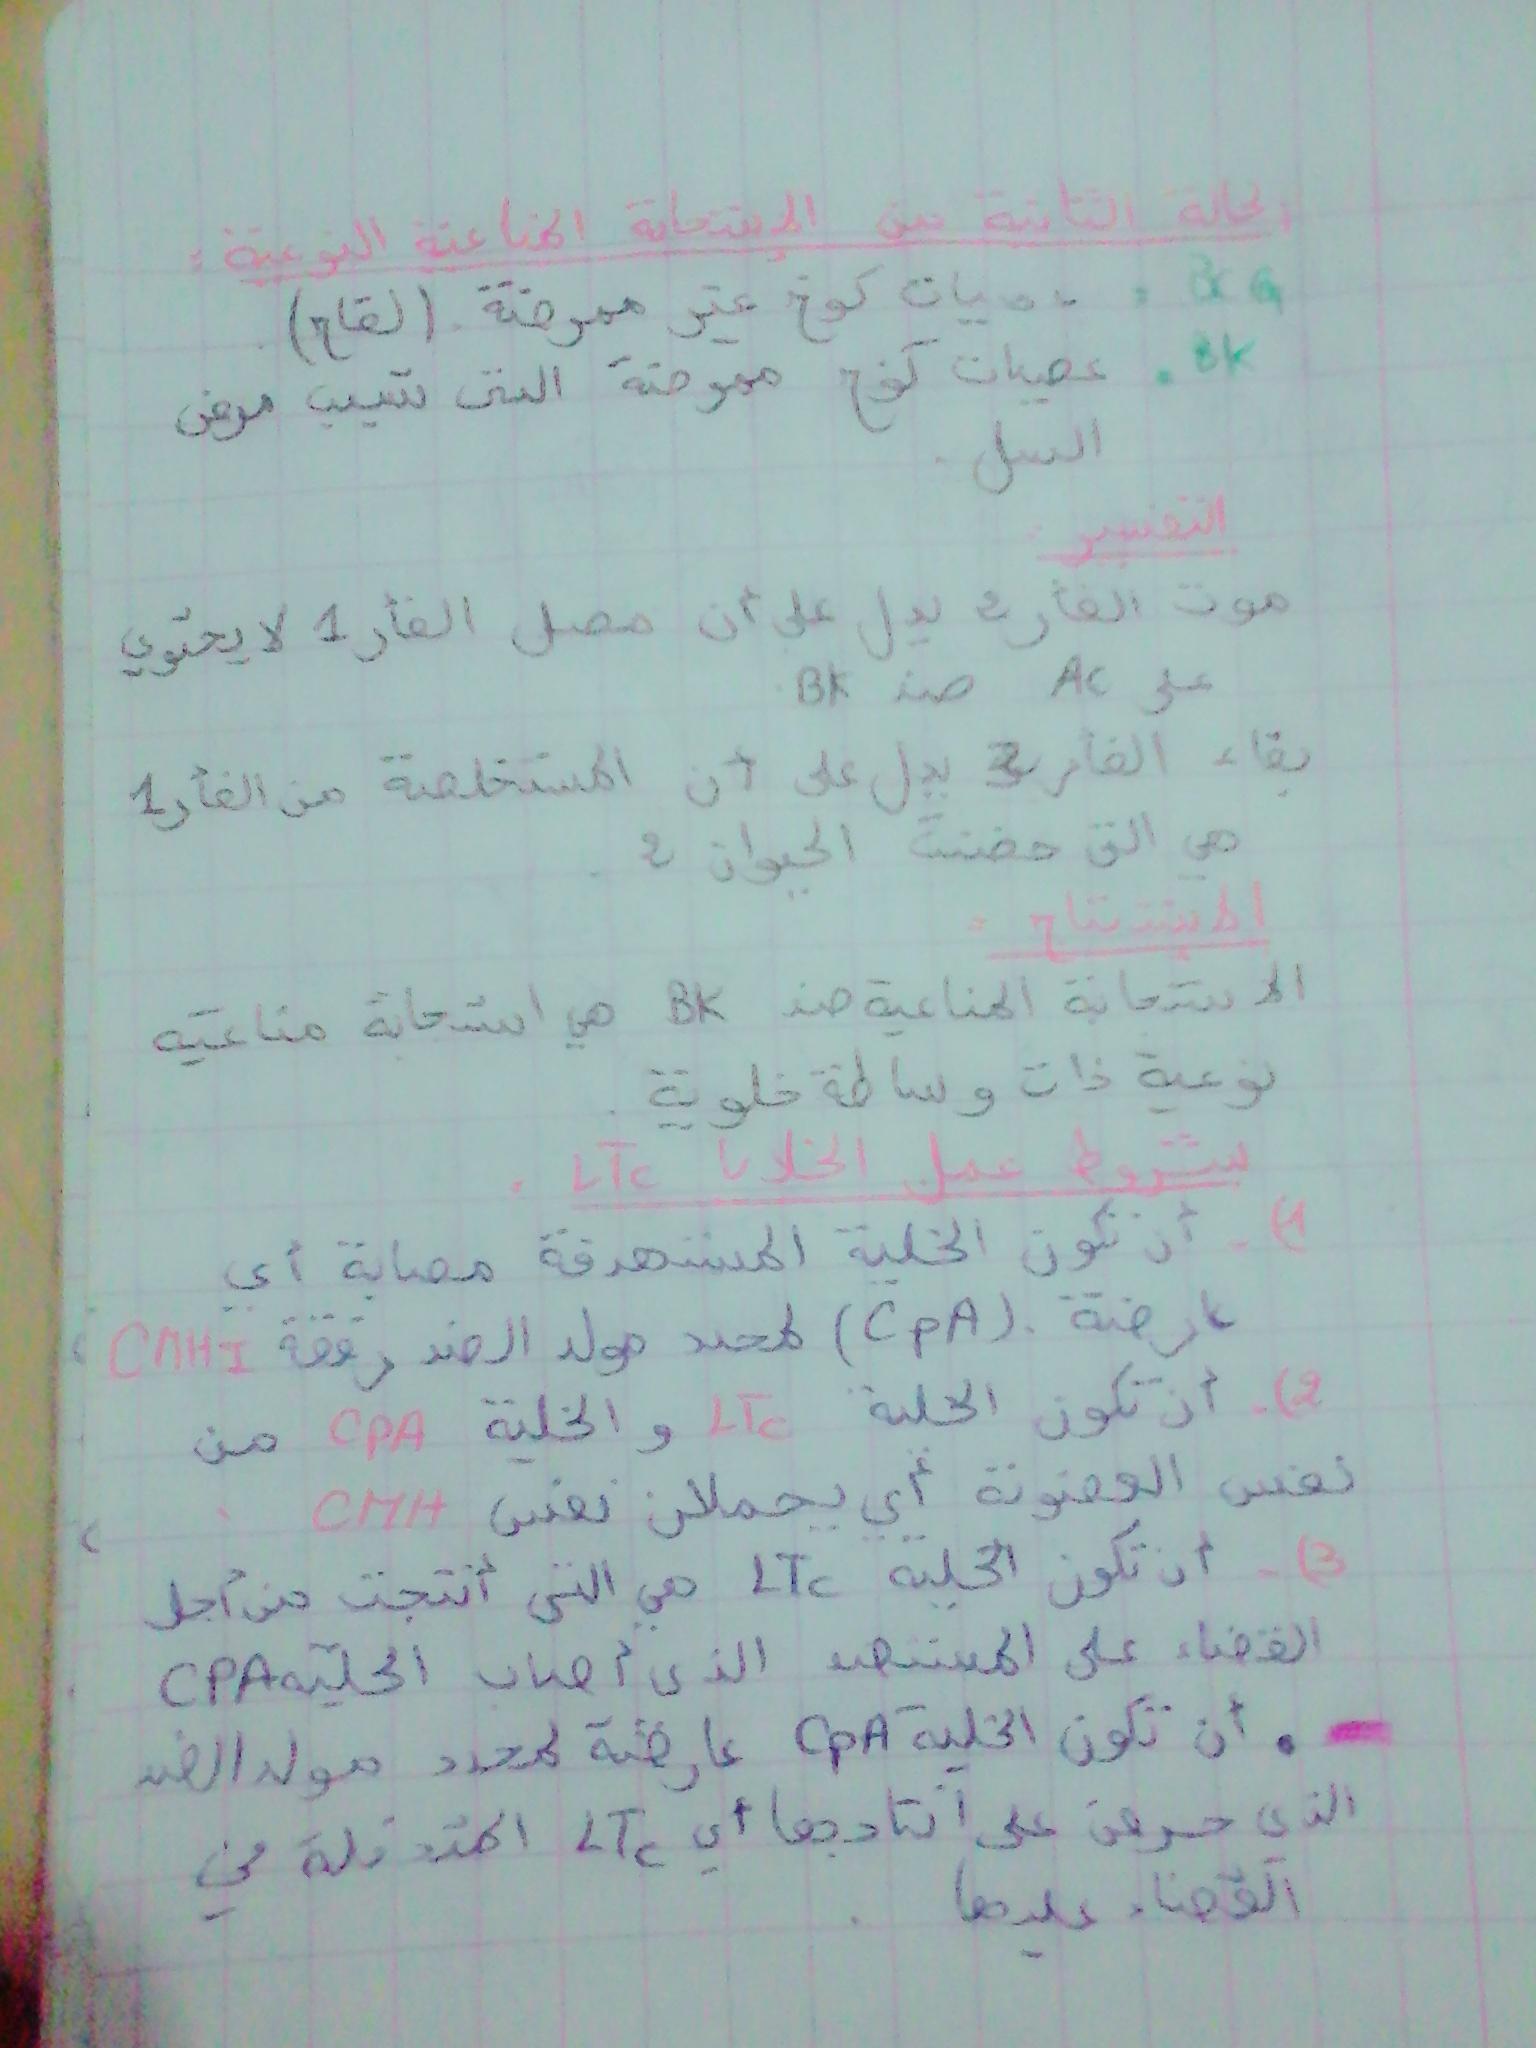 الحالة الثانية من الإستجابة المناعية النوعية :
BCG : عصيات كوخ غير ممرضة . (لقاح) .
BK . عصيات كوخ ممرضة التي تسبب مرض
السل .
التفسير :
موت الفأر 2 يدل على أن مصل الفأر 1 لا يحتوي
على Ac ضد BK .
بقاء الفأر 3 يدل على أن المستخلصة من الفأر 1
هي التي حضنت الحيوان 2 .
الإستنتاج :
الاستجابة المناعية ضد BK هي استجابة مناعية
نوعية ذات وساطة خلوية .
شروط عمل الخلايا LTc .
1) - أن تكون الخلية المستهدفة مصابة أي
عارضة . (CpA) لمحدد مولد الضد رفقة CMH I
2) - أن تكون الخلية LTc و الخلية CPA من
نفس العضوية أي يحملان نفس CMH .
3) - أن تكون الخلية LTc هي التي أنتجت من أجل
القضاء على المستضد الذي أصاب الخلية CPA
. أن تكون الخلية CpA عارضة لمحدد مولد الضد
الذي حرض على انتاجها أي LTc
القضاء عليها .